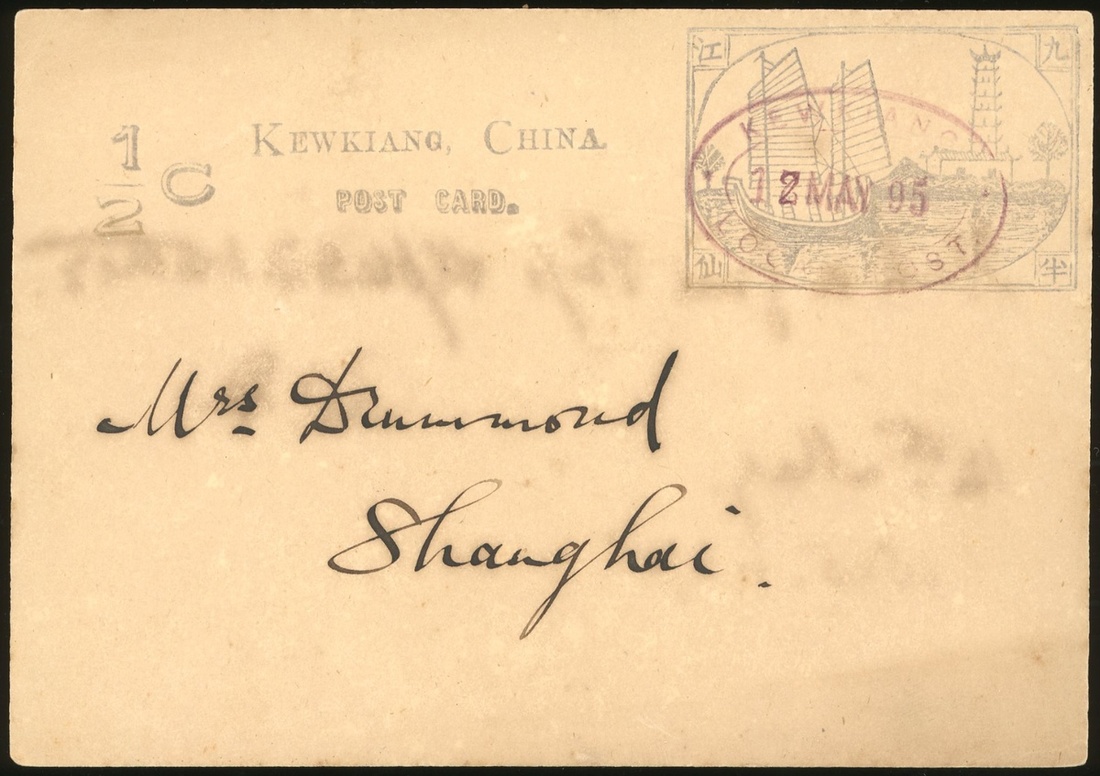 江 九
1/2 C
KEWKIANG, CHINA.
POST CARD.
KEWKIANG
12 MAY 95
LOCAL POST
仙 半
Mrs. Drummond
Shanghai.